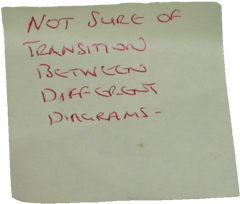 NOT SURE OF
TRANSITION
BETWEEN
DIFFERENT
DIAGRAMS-